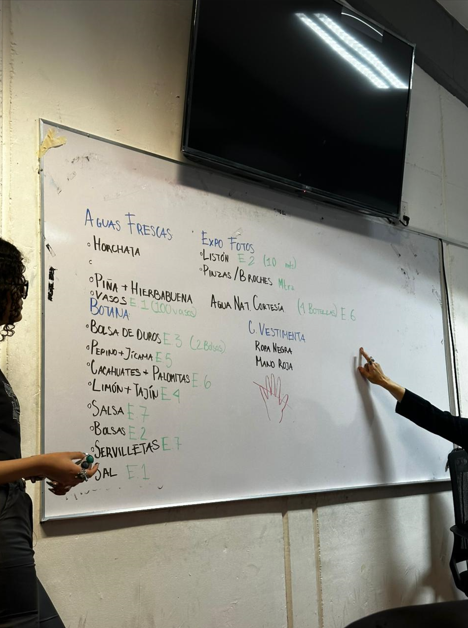 AGUAS FRESCAS
°HORCHATA
°
°PIÑA + HIERBABUENA
°VASOS E 1 (100 vasos)
BOTANA
°BOLSA DE DUROS E 3 (2 Bolsas)
°PEPINO + JÍCAMA E 5
°CACAHUATES + PALOMITAS E 6
°LIMÓN + TAJÍN E 4
°SALSA E 7
°BOLSAS E 2
°SERVILLETAS E 7
°SAL E 1
EXPO FOTOS
°LISTÓN E 2 (10 mts)
°PINZAS / BROCHES
AGUA NAT. CORTESÍA (1 BOTELLA) E 6
C. VESTIMENTA
ROPA NEGRA
MANO ROJA